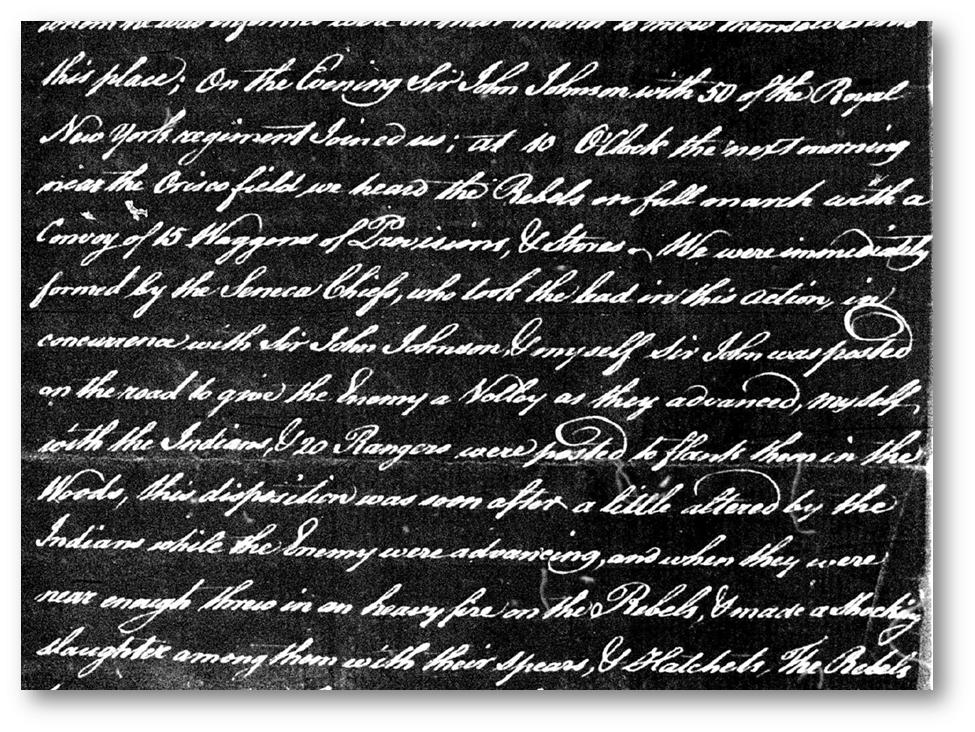 this place; On the Evening Sir John Johnson with 50 of the Royal
New York regiment Joined us; at 10 O'Clock the next morning
near the Orisco field we heard the Rebels on full march with a
Convoy of 15 Waggons of Provisions, & Stores - We were immediately
formed by the Seneca Chiefs, who took the lead in this action, in
concurrence with Sir John Johnson, & myself Sir John was posted
on the road to give the Enemy a Volley as they advanced, myself,
with the Indians, & 20 Rangers were posted to flank them in the
Woods, this disposition was soon after a little altered by the
Indians while the Enemy were advancing, and when they were
near enough threw in an heavy fire on the Rebels, & made a shocking
slaughter among them with their Spears, & Hatchets, The Rebels